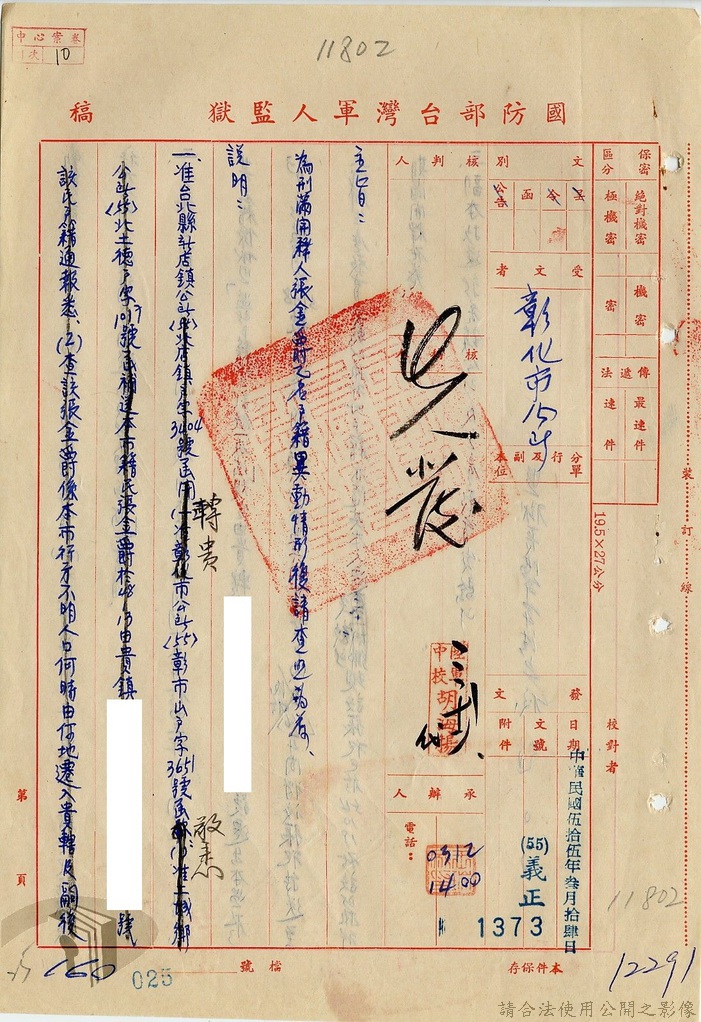 中心案卷
次 10
11802
國防部台灣軍人監獄 稿
保密區分 絕對機密 極機密 機密 密
傳遞法 最速件 速件
文別 呈 令 函 公告
受文者 彰化市公所
分單行及副本位
核判人
核
主旨：
為刑滿開釋人張金爵乙名戶籍異動情形復請查照為荷、
說明：
一、准台北縣新店鎮公所(55)北店鎮戶字3404號函開(一)准彰化市公所(55)彰市山戶字3651號函(1)准土城鄉
公所(55)北土德戶字號函補送本市籍民張金爵於由貴鎮
號
該民戶籍通報悉、(2)查該張金爵係本市行方不明人口何時由何地遷入貴轄及嗣後
轉貴
敬悉
陸軍中校胡海揚
代
發文
日期 中華民國伍拾伍年叁月拾肆日
文號 (55)義正 1373
附件
承辦人
電話：
0312
1400
校對者
19.5×27公分
裝訂線
第 頁
檔號
本件保存
12291
11802
025
請合法使用公開之影像